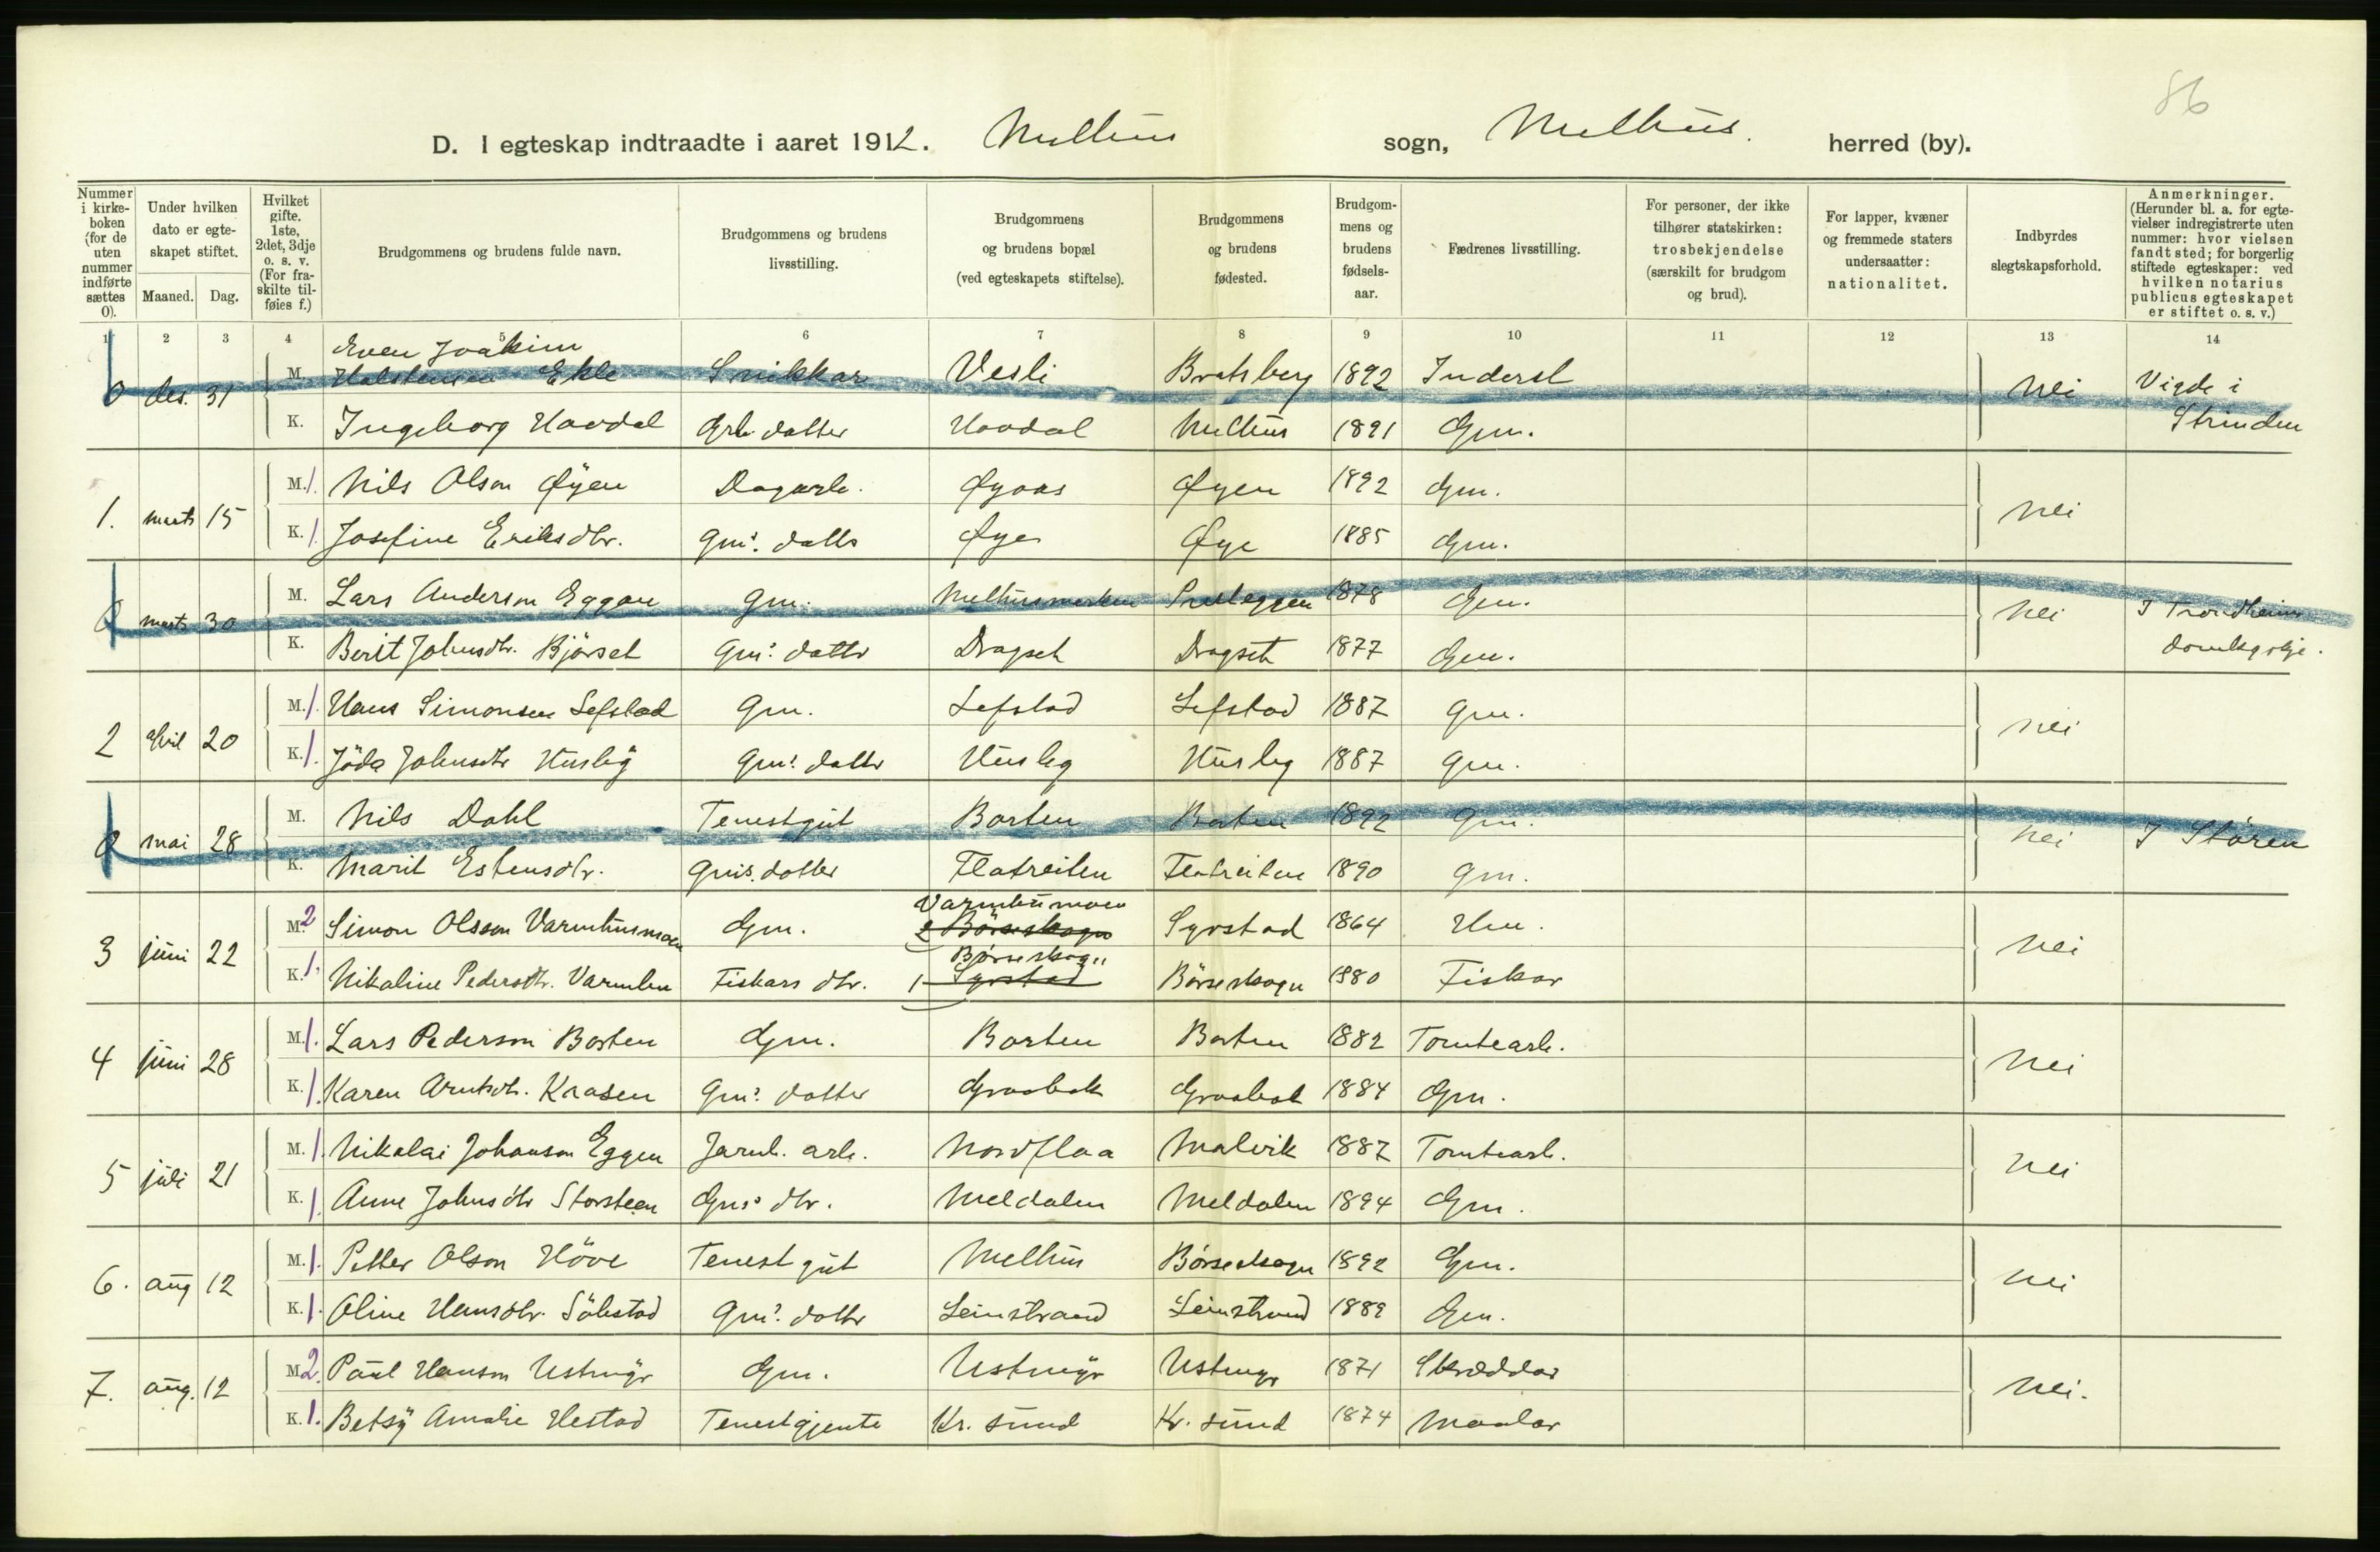 86
D. I egteskap indtraadte i aaret 1912. Melhus sogn, Melhus. herred (by).
Nummer i kirkeboken (for de uten nummer indførte sættes 0).
Under hvilken dato er egteskapet stiftet.
Maaned. Dag.
Hvilket gifte. 1ste, 2det, 3dje o. s. v. (For fraskilte tilføies f.)
Brudgommens og brudens fulde navn.
Brudgommens og brudens livsstilling.
Brudgommens og brudens bopæl (ved egteskapets stiftelse).
Brudgommens og brudens fødested.
Brudgommens og brudens fødselsaar.
Fædrenes livsstilling.
For personer, der ikke tilhører statskirken: trosbekjendelse (særskilt for brudgom og brud).
For lapper, kvæner og fremmede staters undersaatter: nationalitet.
Indbyrdes slegtskapsforhold.
Anmerkninger. (Herunder bl. a. for egtevielser indregistrerte uten nummer: hvor vielsen fandt sted; for borgerlig stiftede egteskaper: ved hvilken notarius publicus egteskapet er stiftet o. s. v.)
1 2 3 4 5 6 7 8 9 10 11 12 13 14
Even Joakim
0 des. 31 M. Halstensen Ekle Snikkar Vesli Bratsberg 1892 Inderst nei Vigde i
K. Ingeborg Hovdal Arb. datter Hovdal Melhus 1891 Gm. Strinden
1. marts 15 M. 1. Nils Olson Øyen Dagarb. Øyaas Øyen 1892 Gm. nei
K. 1. Josefine Eriksdtr. Gm's dattr Øye Øye 1885 Gm.
0 marts 30 M. Lars Anderson Eggan Gm. Melhusmarken Presteggen 1878 Gm. nei I Trondheim
K. Berit Johnsdtr. Bjørset Gm's dattr Dragset Dragset 1877 Gm. domkyrkje.
2 april 20 M. 1. Hans Simonsen Lefstad Gm. Lefstad Lefstad 1887 Gm. nei
K. 1. Jöda Johnsdtr Husby Gm's dattr Husby Husby 1887 Gm.
0 mai 28 M. Nils Dahl Tenestgut Borten Borten 1892 Gm. nei I Støren
K. Marit Estensdtr. Gm's. dotter Flatreiten Flatreiten 1890 Gm.
Varmhusmoen
3 juni 22 M. 2 Simon Olsson Varmhusmoen Gm. 2 Börseskogn Syrstad 1864 Hm. nei
Börseskogn
K. 1. Nikoline Pedersdtr. Varmbu Fiskars dtr. 1 Syrstad Börseskogn 1880 Fiskar
4 juni 28 M. 1. Lars Pederson Borten Gm. Borten Borten 1882 Tomtearb. nei
K. 1. Karen Arntsdtr. Kraasen Gm's dotter Graabak Graabak 1884 Gm.
5 juli 21 M. 1. Nikolai Johanson Eggen Jarnb. arb. Nordflaa Malvik 1887 Tomtearb. nei
K. 1. Anne Johnsdtr Storsteen Gm's dtr. Meldalen Meldalen 1894 Gm.
6. aug 12 M. 1. Petter Olson Höve Tenestgut Melhus Börseskogn 1892 Gm. nei
K. 1. Oline Hansdtr. Söbstad Gm's dottr Leinstrand Leinstrand 1889 Gm.
7. aug. 12 M. 2. Paul Hanson Ustmyr Gm. Ustmyr Ustmyr 1871 Skræddar nei.
K. 1. Betsy Amalie Hestad Tenestgjente Kr. sund Kr. sund 1874 Maalar